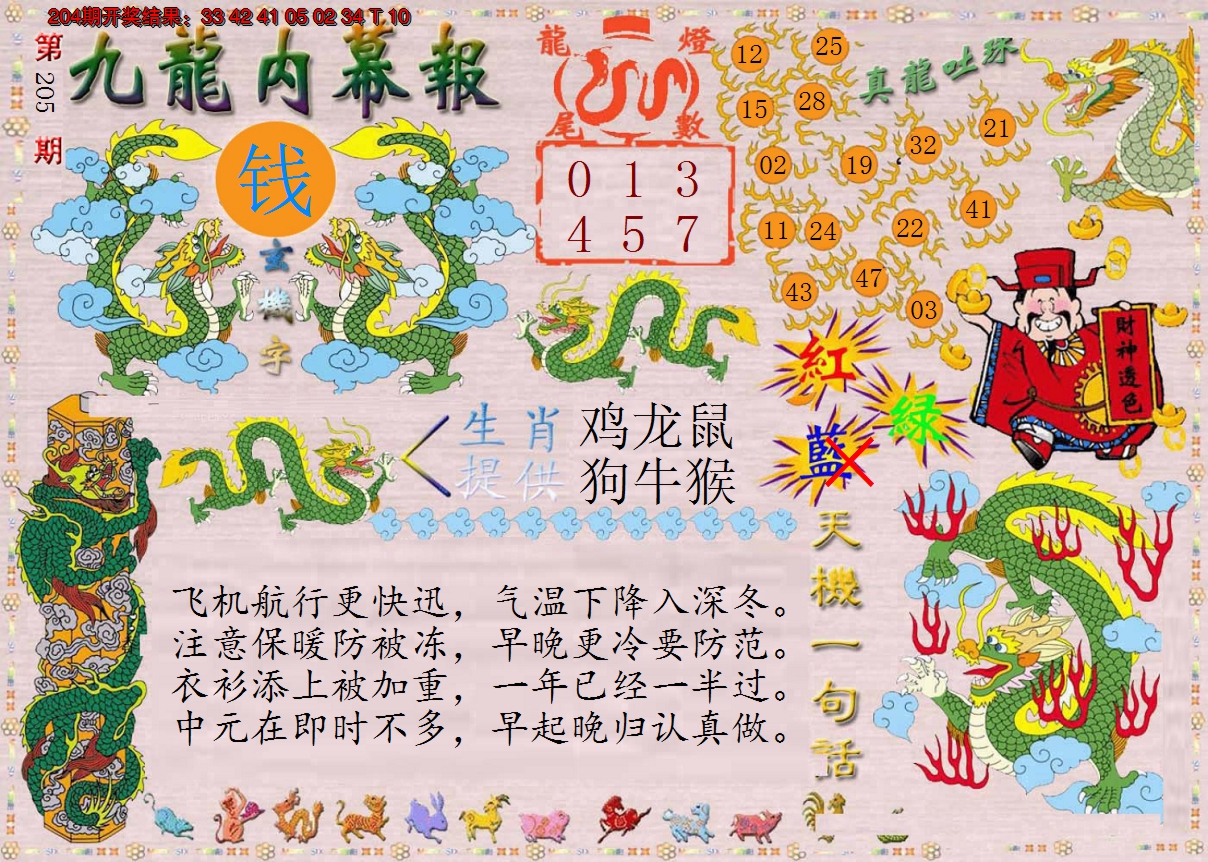 204期开奖结果：33 42 41 05 02 34 T 10
第205期
九龍内幕報
钱
玄機字
龍燈
尾數
0 1 3
4 5 7
真龍吐珠
12 25
15 28
02 19 32 21
11 24 22 41
43 47 03
紅
綠
藍
財神透色
生肖 鸡龙鼠
提供 狗牛猴
飞机航行更快迅，气温下降入深冬。
注意保暖防被冻，早晚更冷要防范。
衣衫添上被加重，一年已经一半过。
中元在即时不多，早起晚归认真做。
天機一句話